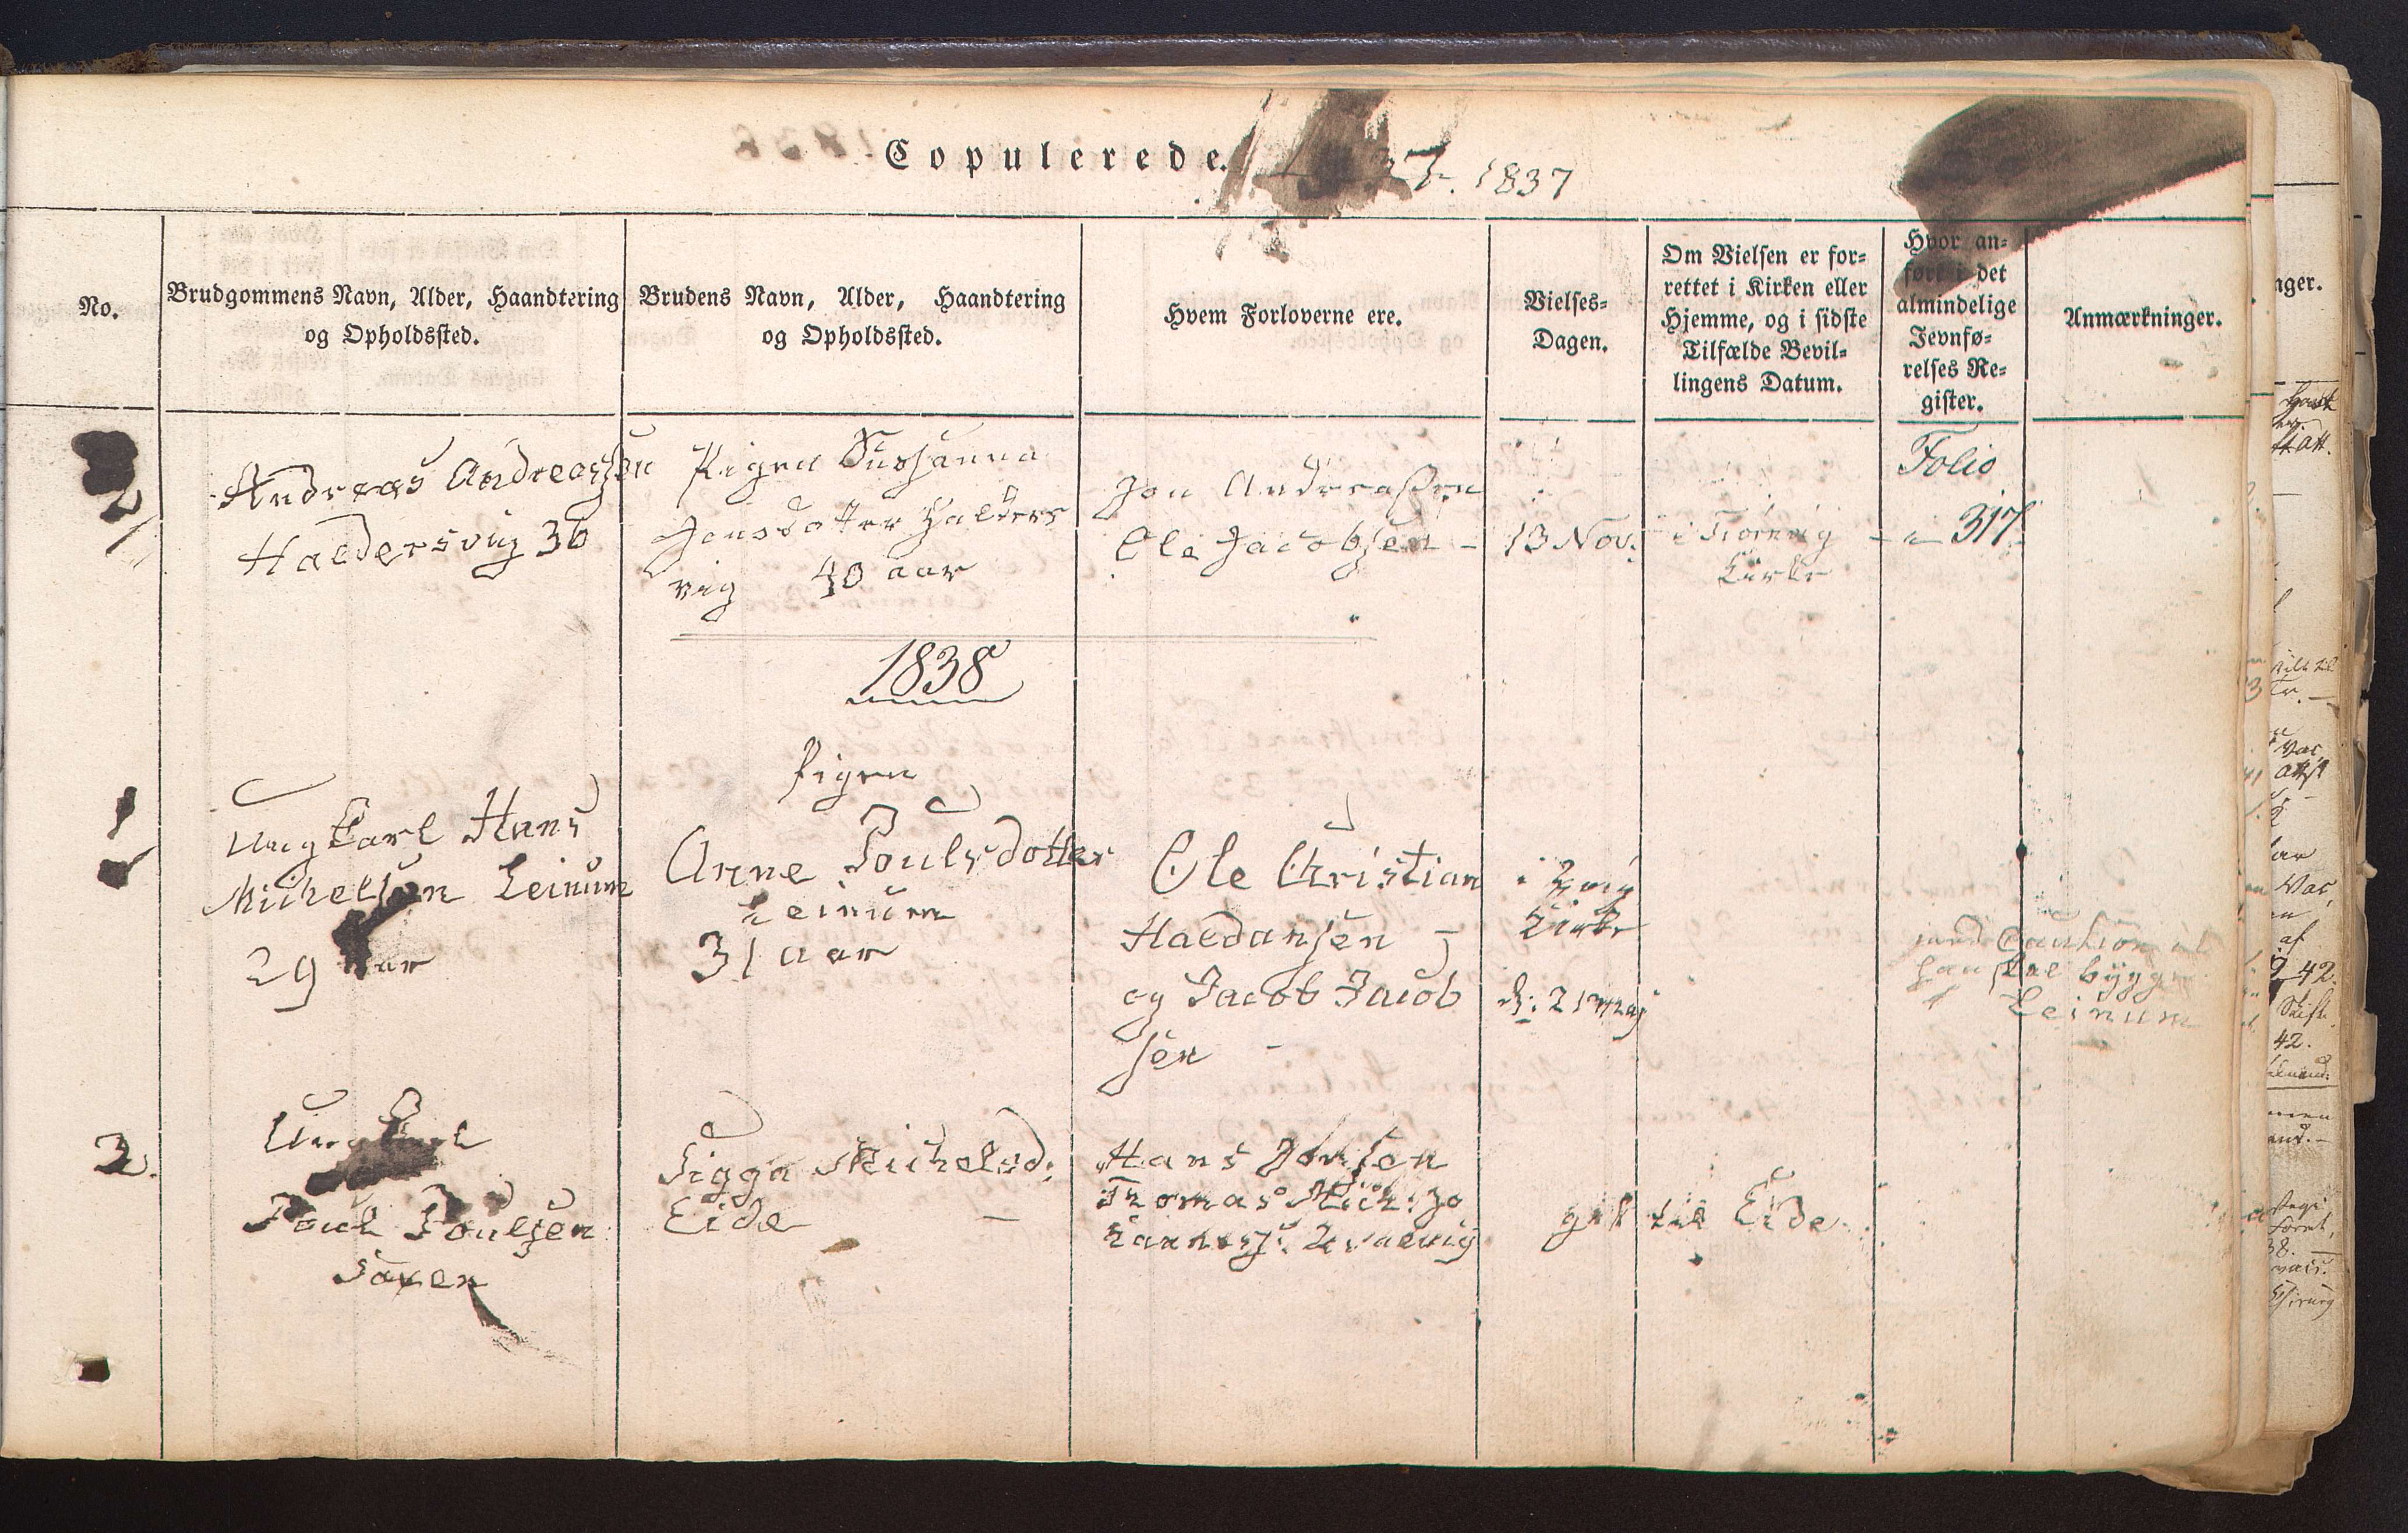 Copulerede. 1837
No.
Brudgommens Navn, Alder, Haandtering
og Opholdssted.
Brudens Navn, Alder, Haandtering
og Opholdssted.
Hvem Forloverne ere.
Vielses-
Dagen.
Om Vielsen er for-
rettet i Kirken eller
Hjemme, og i sidste
Tilfælde Bevil-
lingens Datum.
Hvor an-
ført i det
almindelige
Jevnfø-
relses Re-
gister.
Anmærkninger.
2
Andreas Andreassen
Haldersvig 36
Pigen Sussanna
Jensdotter Halders
vig 40 aar
Jon Andreasen
Ole Jacobsen -
13 Nov:
i
Kirke
Folio
317
1838
1
Ungkarl Hans
Michelsen Leinum
29 aar
Pigen
Anne Poulsdotter
Leinum
31 aar
Ole Christian
Haldansen
og Jacob Jacob
sen -
i Hvig
Kirke
d: 21 Maj
Caution
bygge
Leinum
2.
Ungkarl
Poul Poulsen
Saxen
Sigga Michelsd:
Eide -
Hans
Thomas Mich:
til Eide